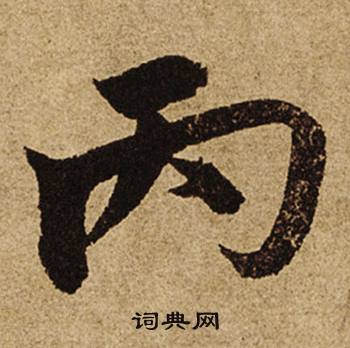 丙
词典网